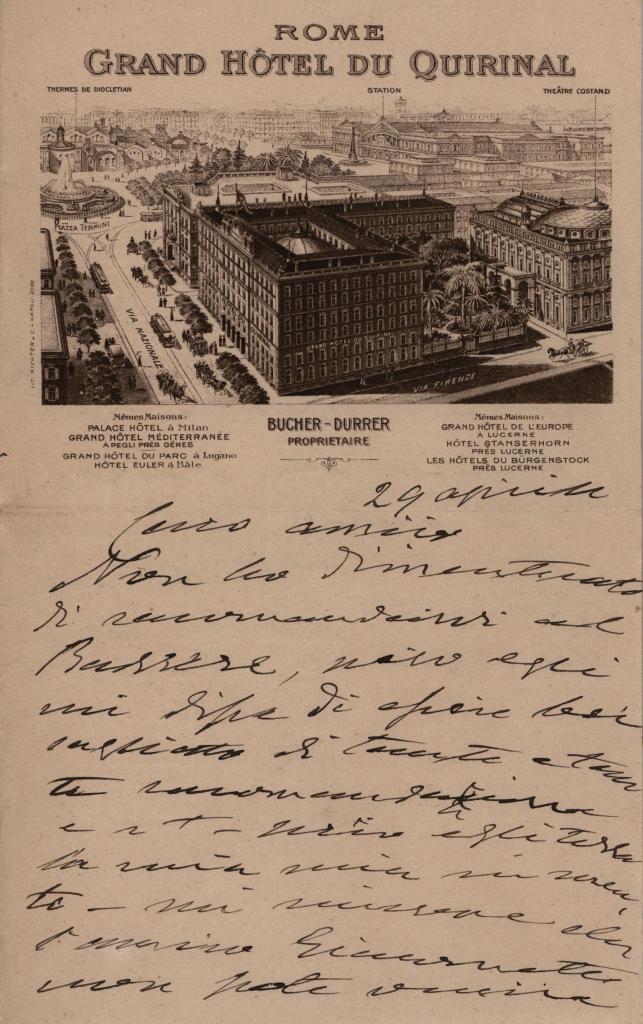 ROME
GRAND HÔTEL DU QUIRINAL
THERMES DE DIOCLETIAN
STATION
THEÂTRE COSTANZI
PIAZZA TERMINI
VIA NAZIONALE
GRAND HOTEL DU QUIRINAL
VIA FIRENZE
LIT. RICHTER & C. NAPOLI
Mêmes Maisons:
PALACE HÔTEL à Milan
GRAND HÔTEL MÉDITERRANÉE
À PEGLI PRÈS GÊNES
GRAND HÔTEL DU PARC à Lugano
HÔTEL EULER à Bâle
BUCHER-DURRER
PROPRIETAIRE
Mêmes Maisons:
GRAND HÔTEL DE L'EUROPE
À LUCERNE
HÔTEL STANSERHORN
PRÈS LUCERNE
LES HÔTELS DU BÜRGENSTOCK
PRÈS LUCERNE
29 aprile
Caro amico
Non ho dimenticato
di raccomandarvi al
però egli
mi disse di essere
di tante e tan
te raccomandazioni
e c t - però egli terrà
la mia in
te - mi rincresce che
l'amico
non potè venire